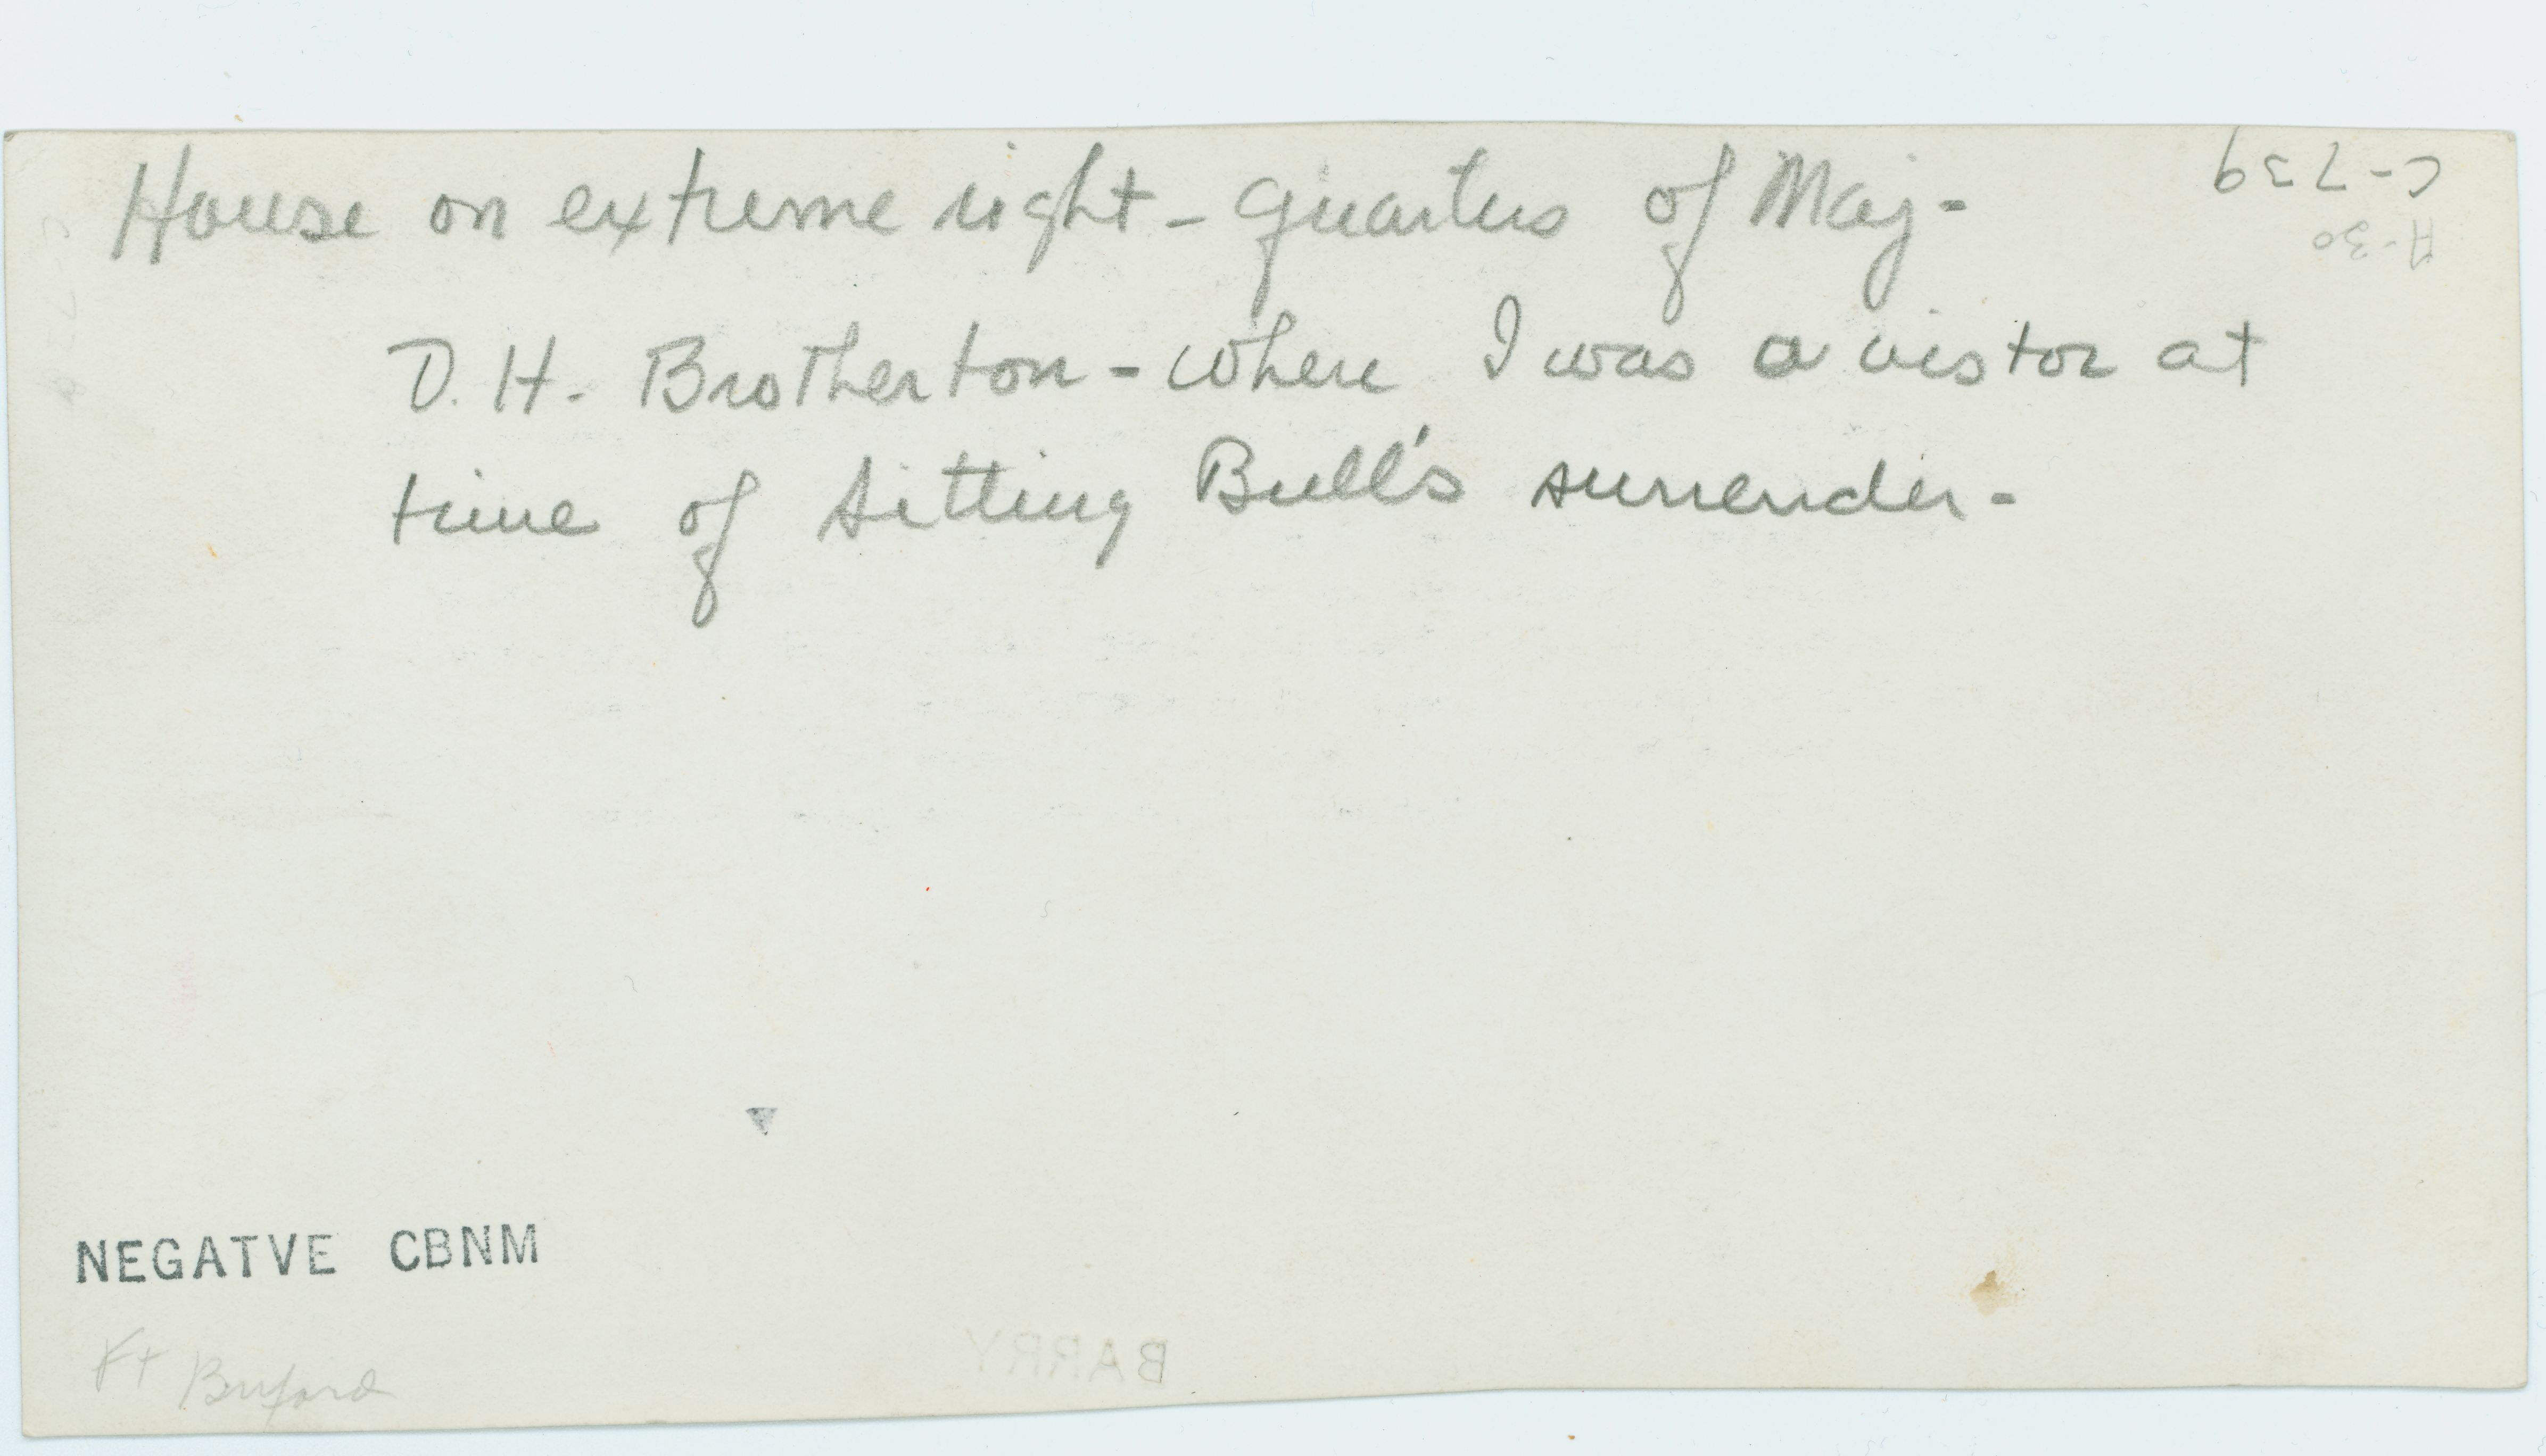 House on extreme right - quarters of Maj -
D. H. Brotherton - where I was a vistor at
time of Sitting Bull's surrender -
C-739
A-30
NEGATVE CBNM
Ft Buford
BARRY